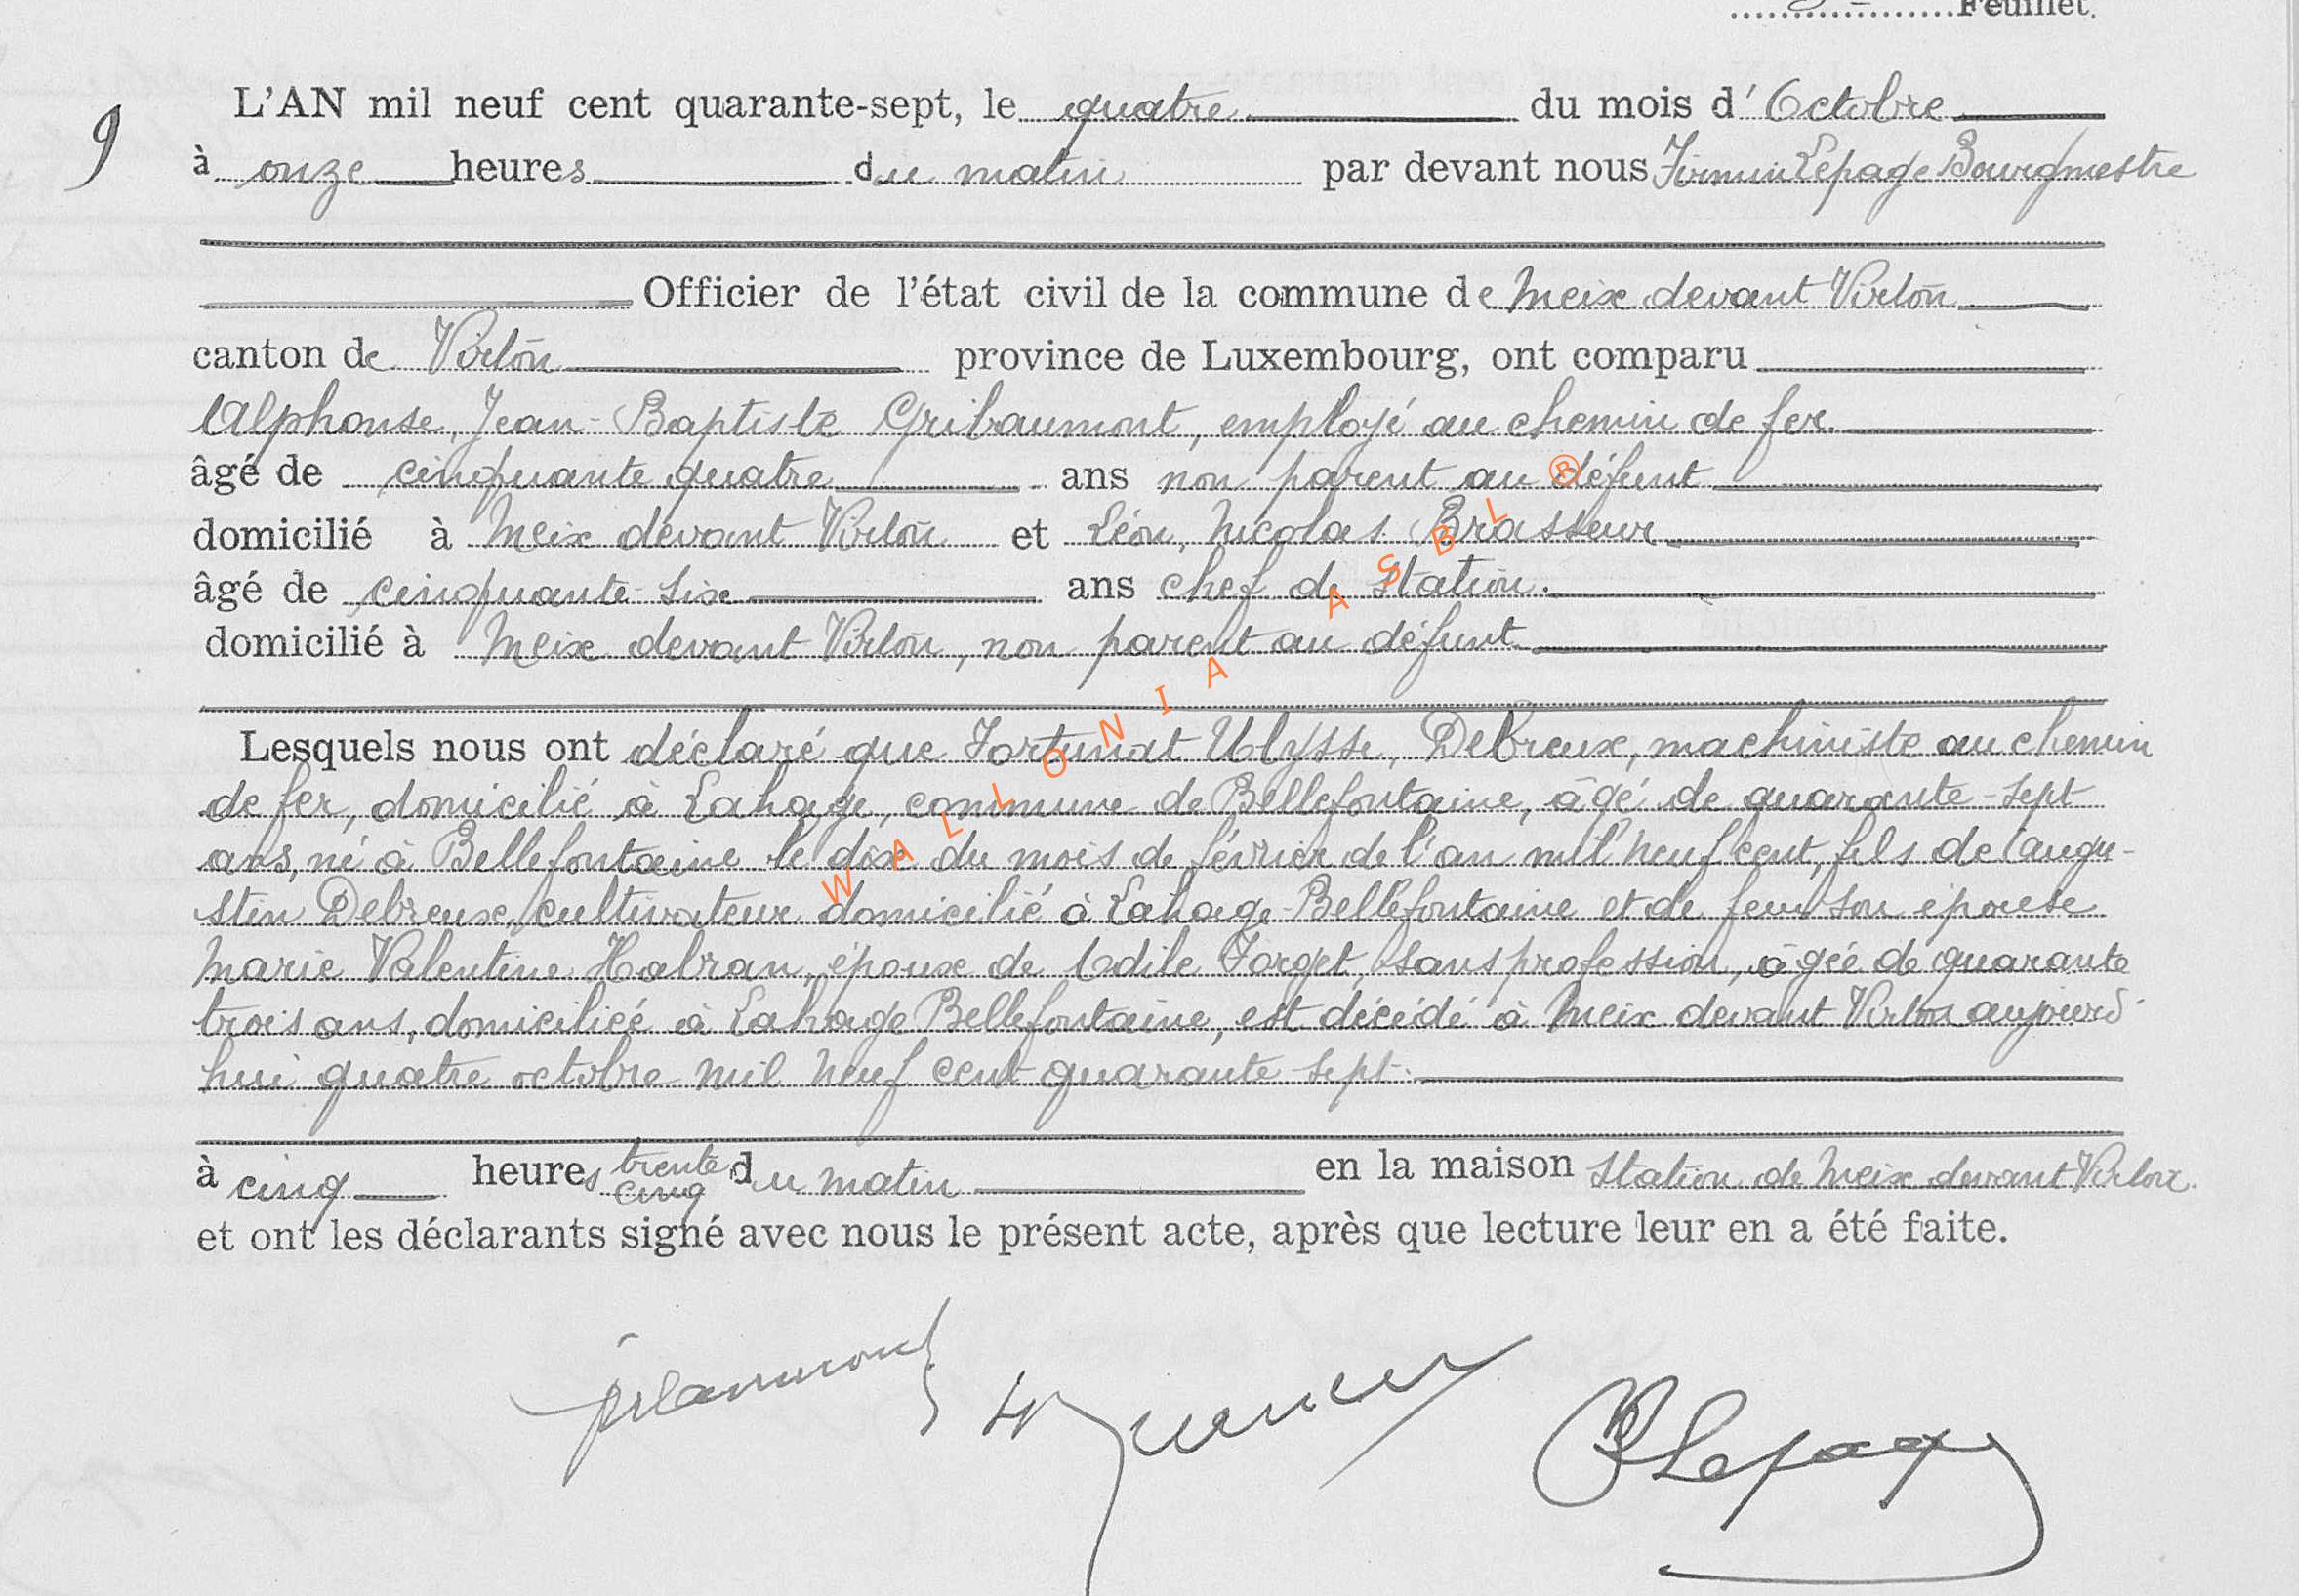 Feuillet.
9
L'AN mil neuf cent quarante-sept, le quatre du mois d'Octobre
à onze heures du matin par devant nous Firmin Lepage Bourgmestre
Officier de l'état civil de la commune de Meix devant Virton
canton de Virton province de Luxembourg, ont comparu
Alphonse, Jean-Baptiste Gribaumont, employé au chemin de fer.
âgé de cinquante quatre ans non parent au défunt
domicilié à Meix devant Virton et Léon, Nicolas Brasseur
âgé de cinquante-six ans chef de station.
domicilié à Meix devant Virton, non parent au défunt.
Lesquels nous ont déclaré que Fortunat Ulysse, Debreux, machiniste au chemin
de fer, domicilié à Lahage, commune de Bellefontaine, âgé de quarante-sept
ans, né à Bellefontaine le dix du mois de février de l'an mil neuf cent, fils de Augu-
stin Debreux, cultivateur domicilié à Lahage-Bellefontaine et de feu son épouse
Marie Valentine Habran, époux de Odile Forget, sans profession, âgée de quarante
trois ans, domiciliée à Lahage Bellefontaine, est décédé à Meix devant Virton aujourd'
hui quatre octobre mil neuf cent quarante-sept.
à cinq heures trente cinq du matin en la maison station de Meix devant Virton.
et ont les déclarants signé avec nous le présent acte, après que lecture leur en a été faite.
Lepage
WALLONIA ASBL ®